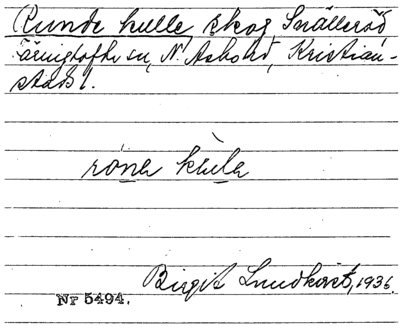 Runde kulle, skog, Snälleröd
Färingtofta sn, N. Asbo hd, Kristian-
stads l.
röna kula
Birgit Lundkvist, 1936.
Nr 5494.